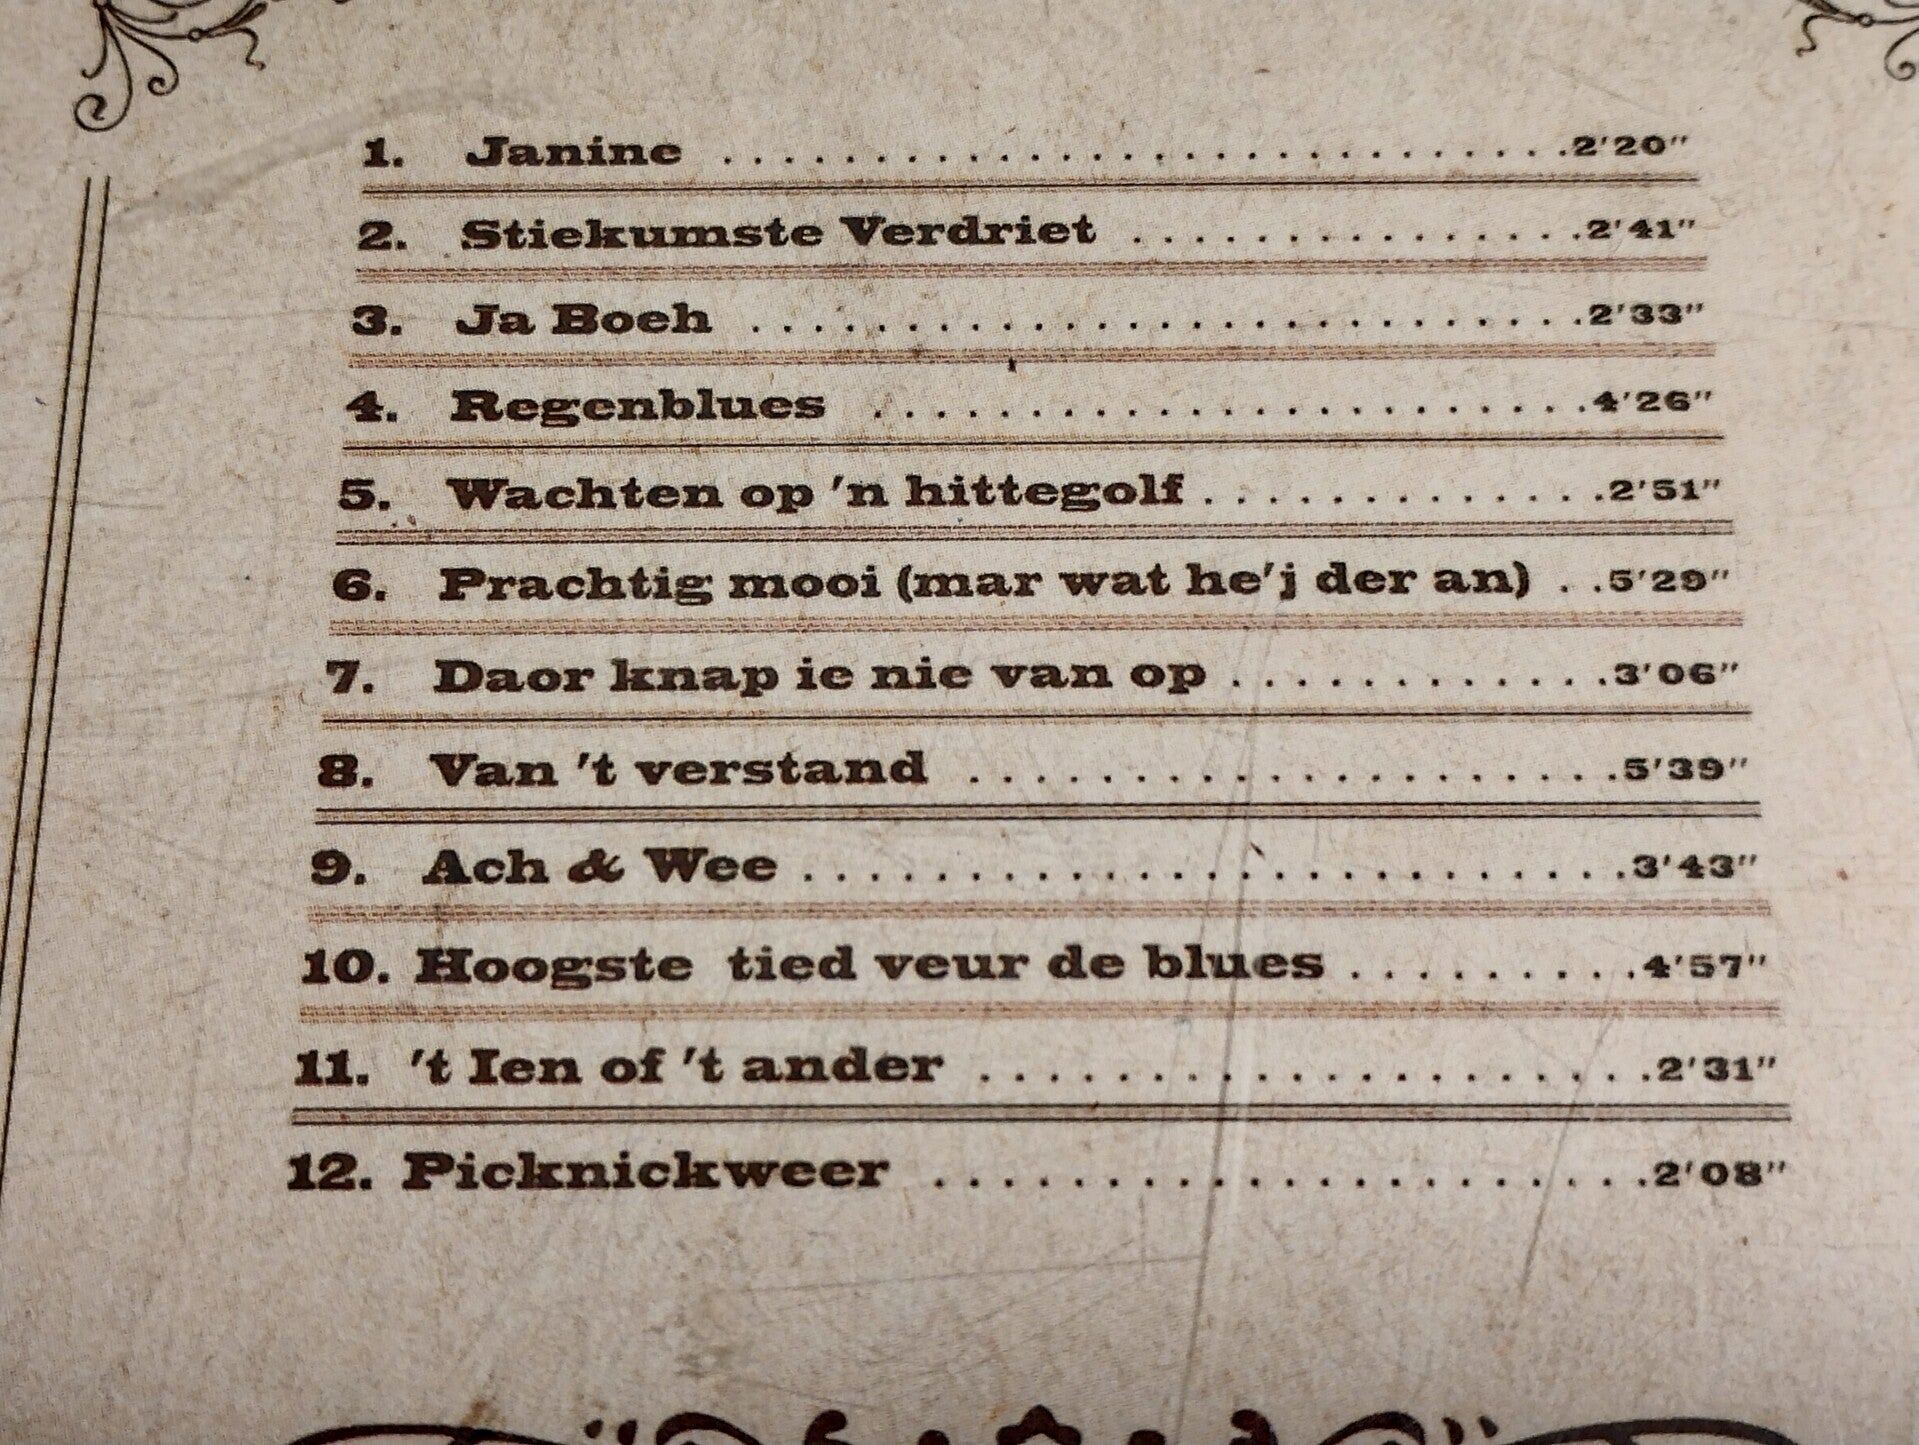 1. Janine ..............................2'20"
2. Stiekumste Verdriet ................2'41"
3. Ja Boeh ...........................2'33"
4. Regenblues .......................4'26"
5. Wachten op 'n hittegolf .............2'51"
6. Prachtig mooi (mar wat he'j der an) ..5'29"
7. Daor knap ie nie van op ............3'06"
8. Van 't verstand ....................5'39"
9. Ach & Wee ........................3'43"
10. Hoogste tied veur de blues .........4'57"
11. 't Ien of 't ander ....................2'31"
12. Picknickweer ......................2'08"